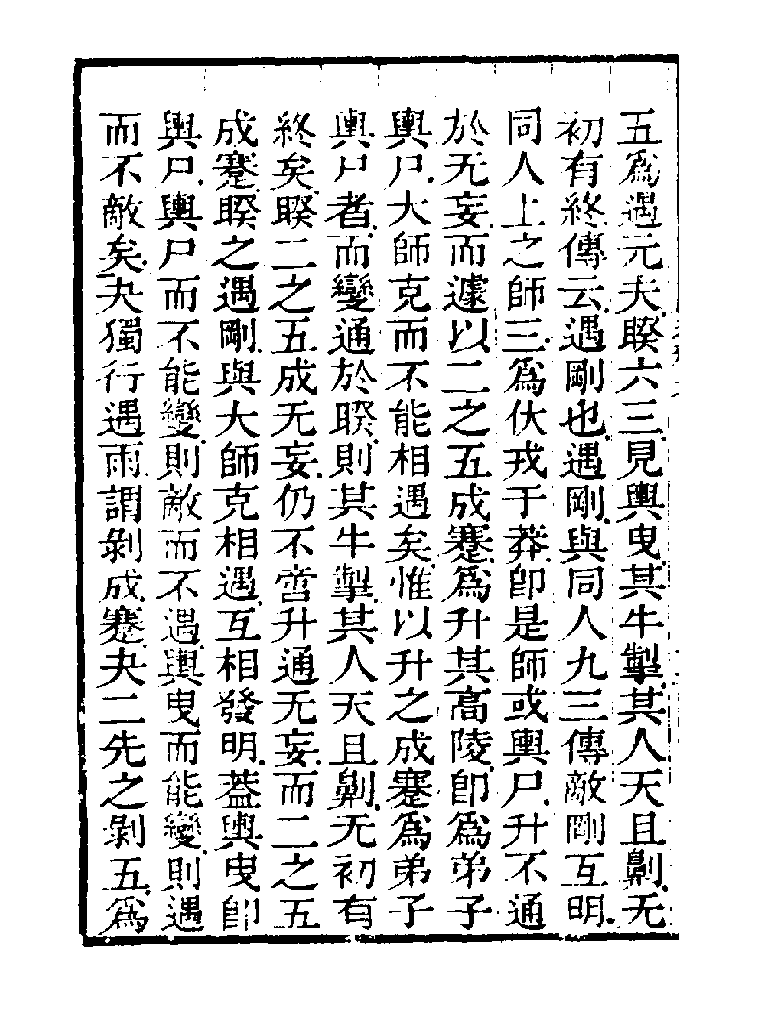 五爲遇元夫睽六三見輿曳其牛掣其人天且劓无
初有終傳云遇剛也遇剛與同人九三傳敵剛互明
同人上之師三爲伏戎于莽卽是師或輿尸升不通
於无妄而遽以二之五成蹇爲升其高陵卽爲弟子
輿尸大師克而不能相遇矣惟以升之成蹇爲弟子
輿尸者而變通於睽則其牛掣其人天且劓无初有
終矣睽二之五成无妄仍不啻升通无妄而二之五
成蹇睽之遇剛與大師克相遇互相發明葢輿曳卽
輿尸輿尸而不能變則敵而不遇輿曳而能變則遇
而不敵矣夬獨行遇雨謂剝成蹇夬二先之剝五爲